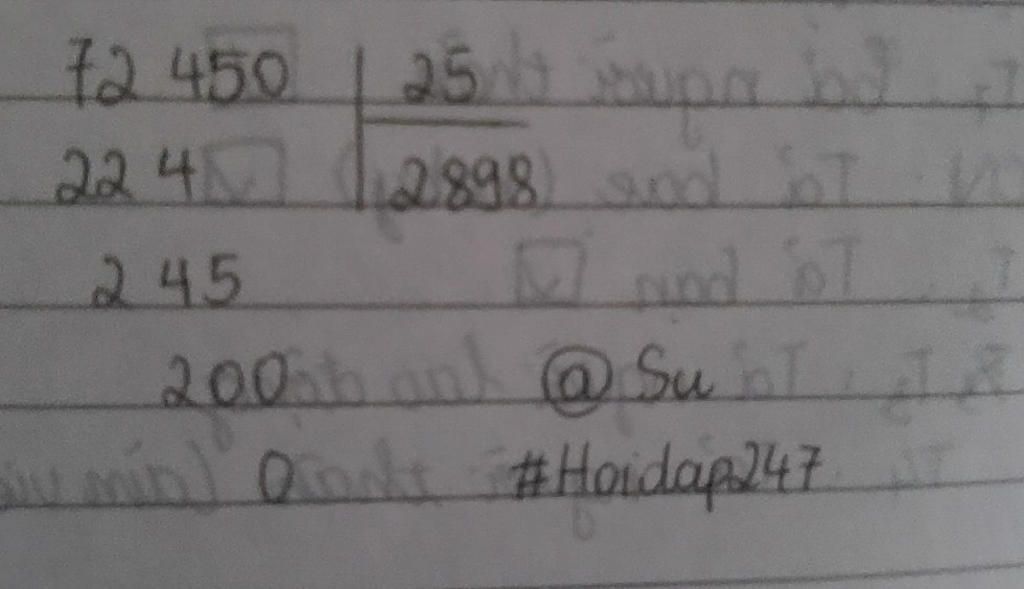 72 450 | 25
224 | 2898
245
200 @Su
0 #Hoidap247